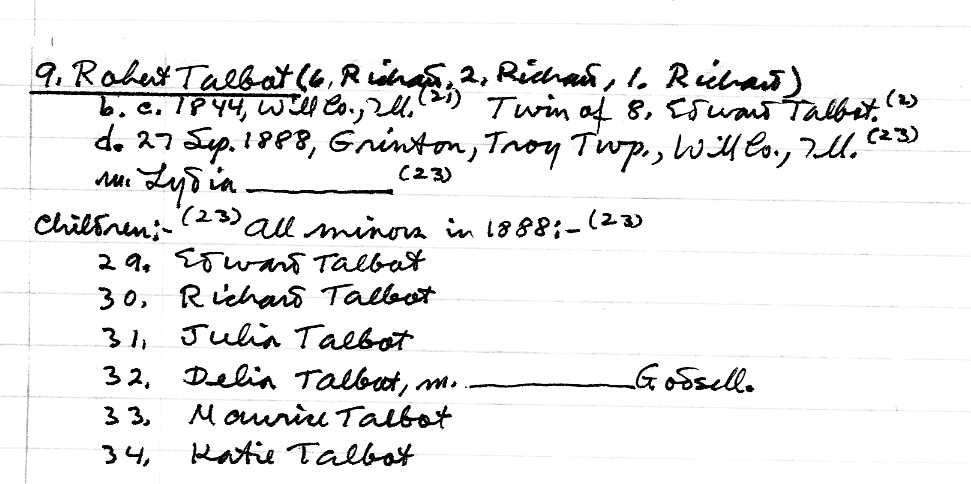 9. Robert Talbot (6. Richard, 2. Richard, 1. Richard)
b. c. 1844, Will Co., Ill. (21) Twin of 8. Edward Talbot. (2)
d. 27 Sep. 1888, Grinton, Troy Twp., Will Co., Ill. (23)
m. Lydia __________ (23)
Children:- (23) All minors in 1888:- (23)
29. Edward Talbot
30. Richard Talbot
31. Julia Talbot
32. Delia Talbot, m. __________ Godsell.
33. Maurice Talbot
34. Katie Talbot